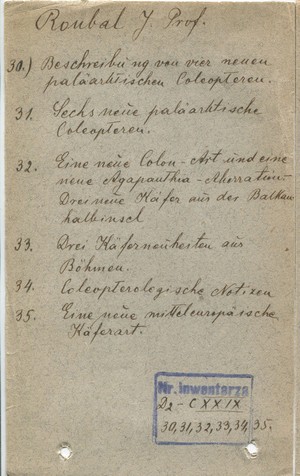 Roubal J. Prof.
30.) Beschreibung von vier neuen
paläarktischen Coleopteren.
31. Sechs neue paläarktische
Coleopteren.
32. Eine neue Colon-Art und eine
neue Agapanthia-Aberration-
Drei neue Käfer aus der Balkan
halbinsel
33. Drei Käferneuheiten aus
Böhmen.
34. Coleopterologische Notizen
35. Eine neue mitteleuropäische
Käferart.
Nr. inwentarza
D2-CXXIX
30,31,32,33,34,35.